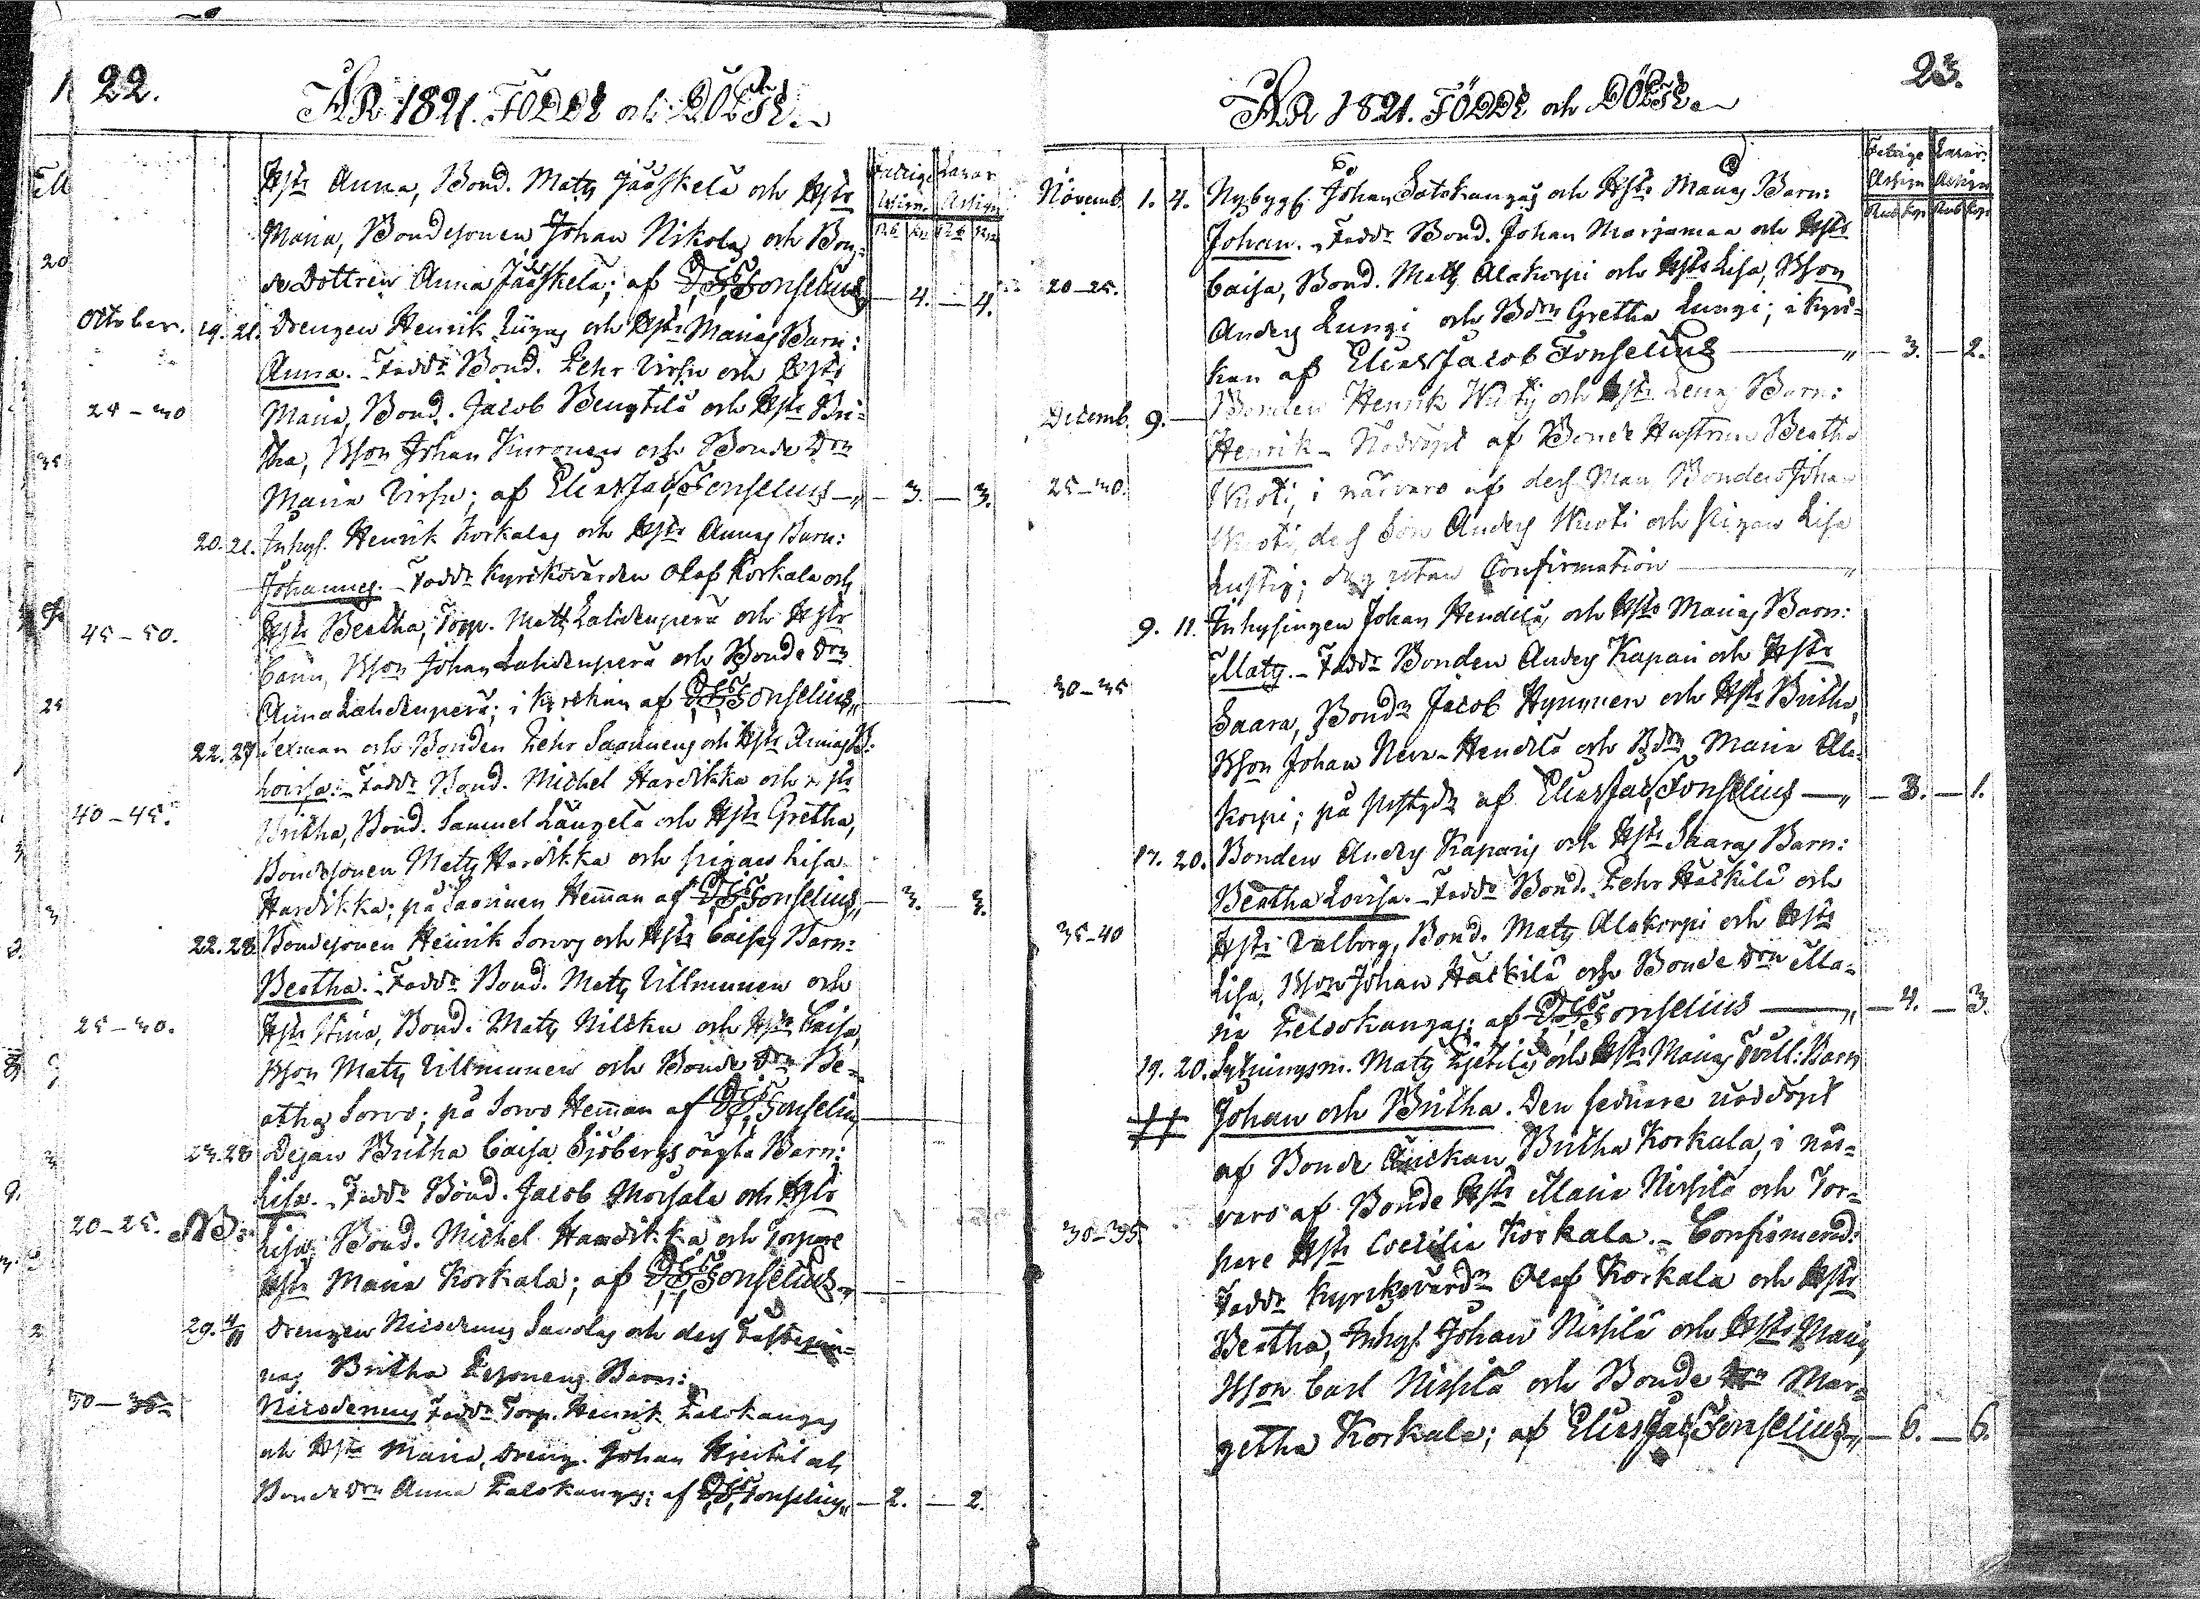 22.
ÅR 1821. FÖDDE och DÖPTE.
Fattige Lazar.
Assign. Assign.
Rub Kop Rub Kop
Hstr Anna, Bond. Mats Jääskelä och Hstr
Maria, Bondesonen Johan Nikola och Bon-
de Dottren Anna Jääskelä; af Fonselius — 4. — 4.
October. 19. 21. Drengen Henrik och Hstr Marias Barn:
Anna. - Faddr Bond. Pehr Virsu och Hstr
Maria, Bond. Jacob Bengtilä och Hstr Bri-
tha, BSon Johan Kuronen och Bonde Drn
Maria Virsu; af Elias Jac. Fonselius — 3. — 3.
20. 21. Inhys. Henrik Korkalas och Hstr Annas Barn:
Johannes. - Faddr Kyrkovärden Olof Korkala och
45-50.
Hstr Beatha, Torp. Matts Lahdenperä och Hstr
BSon Johan Lahdenperä och Bonde Drn
Anna Lahdenperä; i Kyrckan af Fonselius
22. 27. Sexman och Bonden Pehr Saarinens och Hstr Annas B:
Lovisa. - Faddr Bond. Michel Hardikka och Hstr
40-45.
Britha, Bond. Samuel Längelä och Hstr Gretha,
Bondesonen Mats Hardikka och Pigan Lisa
Hardikka; på Saarinen Hemman af Fonselius — 3. — 3.
22. 28. Bondesonen Henrik Sorvos och Hstr Caisas Barn:
Beatha. - Faddr Bond. Mats Ullmunen och
25-30.
Hstr Stina, Bond. Mats Niloku och Hstr Caisa,
BSon Mats Ullmunen och Bonde Drn Be-
atha Sorvo; på Sorvo Hemman af Fonselius
23. 28. Pigan Britha Caisa Sjöbergs oägta Barn:
Lisa. - Faddr Bond. Jacob Morsala och Hstr
20-25. NB:
Lisa, Bond. Michel Hardikka och Torpare
Hstr Maria Korkala; af Fonselius
29. 4/11 Drengen Nicodemus Savolas och dess Fästeqvin-
nas Britha Barn:
Nicodemus Faddr Torp. Henrik Pelsokangas
och Hstr Maria, Dreng. Johan och
Bonde Drn Anna Pelsokangas; af Fonselius — 2. — 2.
23.
ÅR 1821. FÖDDE och DÖPTE.
Fattige Lazar.
Assign Assign
Rub Kop Rub Kop
Novemb. 1. 4. Nybygg. Johan Satokangas och Hstr Marias Barn:
Johan. - Faddr Bond. Johan Marjamaa och Hstr
20-25.
Caisa, Bond. Mats Alakorpi och Hstr Lisa, BSon
Anders Lungi och BDrn Gretha Lungi; i Kyrc-
kan af Elias Jacob Fonselius — 3. — 2.
Decemb. 9. — Bonden Henrik Wuoti och Hstr Lenas Barn:
Henrik - Nöddöpt af Bonde Hustrun Beatha
25-30.
Wuoti, i närvaro af dess Man Bonden Johan
Wuoti, dess Son Anders Wuoti och Pigan Lisa
Lustig; dog utan Confirmation
9. 11. Inhysingen Johan Hendeläs och Hstr Marias Barn:
Mats. - Faddr Bonden Anders Kapari och Hstr
30-35
Saara, Bondn Jacob Hynynen och Hstr Britha,
BSon Johan Neva-Hendelä och BDrn Maria Ala-
korpi; på af Elias Jac. Fonselius — 3. — 1.
17. 20. Bonden Anders Kaparis och Hstr Saaras Barn:
Beatha Lovisa. - Faddr Bond. Pehr Häckilä och
35-40
Hstr Valborg, Bond. Mats Alakorpi och Hstr
Lisa, BSon Johan Häckilä och Bonde Drn Ma-
ria Pelsokangas; af Fonselius — 4. — 3.
19. 20. Sytningsm. Mats och Hstr Marias Tvill: Barn
Johan och Britha. Den sednare nöddöpt
af Bonde Enckan Britha Korkala, i när-
varo af Bonde Hstr Maria Nissilä och Tor-
30-35
pare Hstr Coecilia Korkala. - Confirmerad:
Faddr Kyrckovärdn Olof Korkala och Hstr
Beatha, Inhys. Johan Nissilä och Hstr Maria,
BSon Carl Nissilä och Bonde Drn Mar-
getha Korkala; af Elias Jac. Fonselius — 6. — 6.